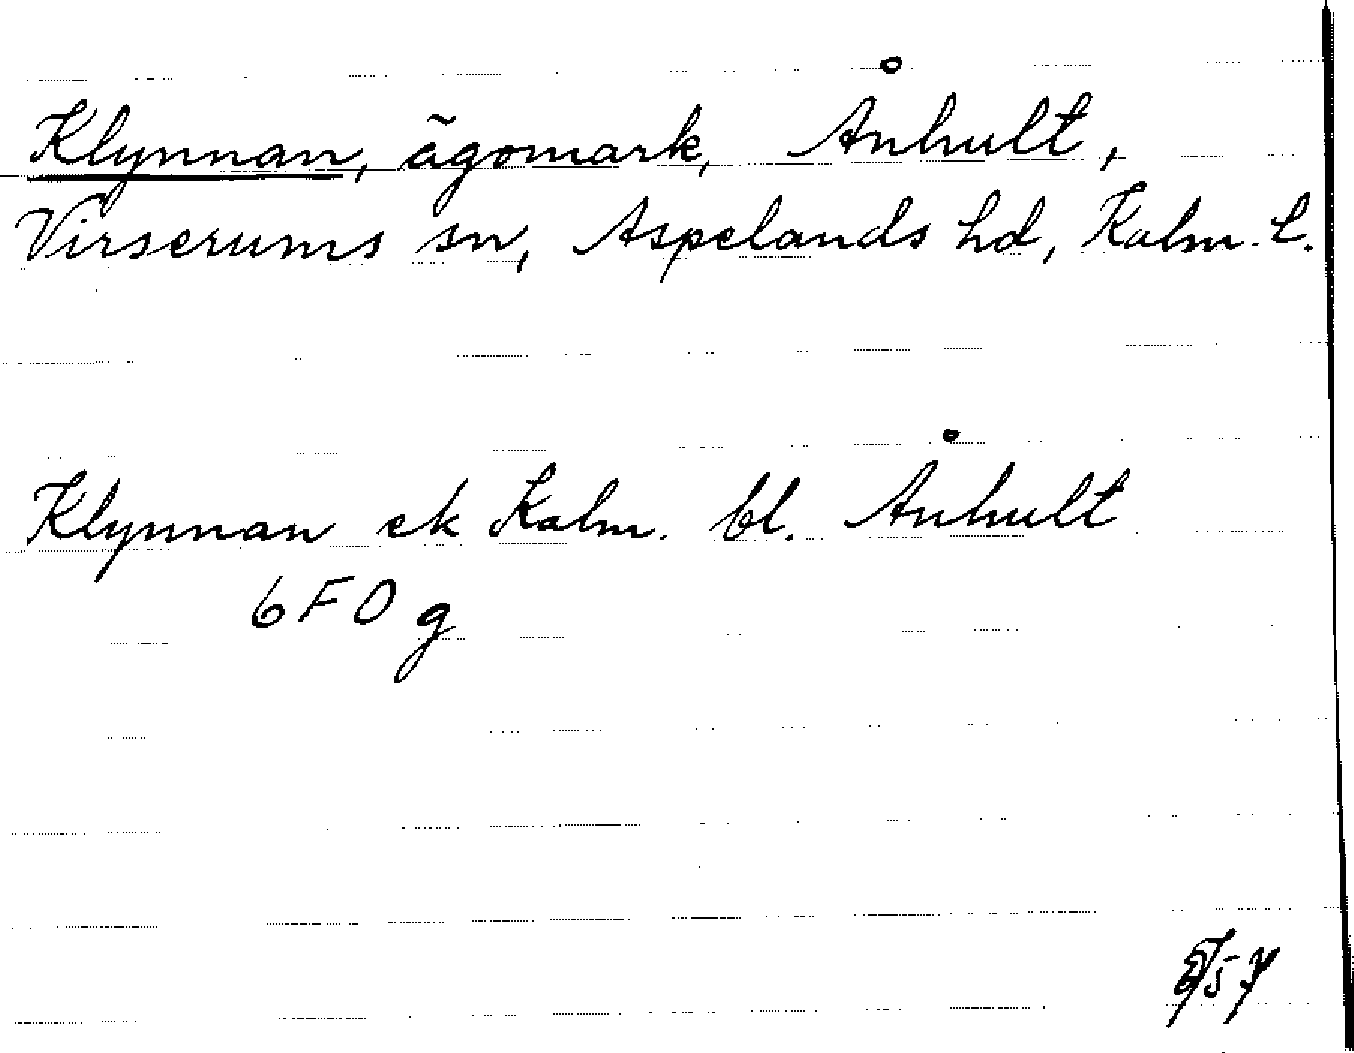 Klynnan, ägomark, Ånhult,
Virserums sn, Aspelands hd, Kalm. l.
Klynnan ek Kalm. bl. Ånhult
6 F 0 g